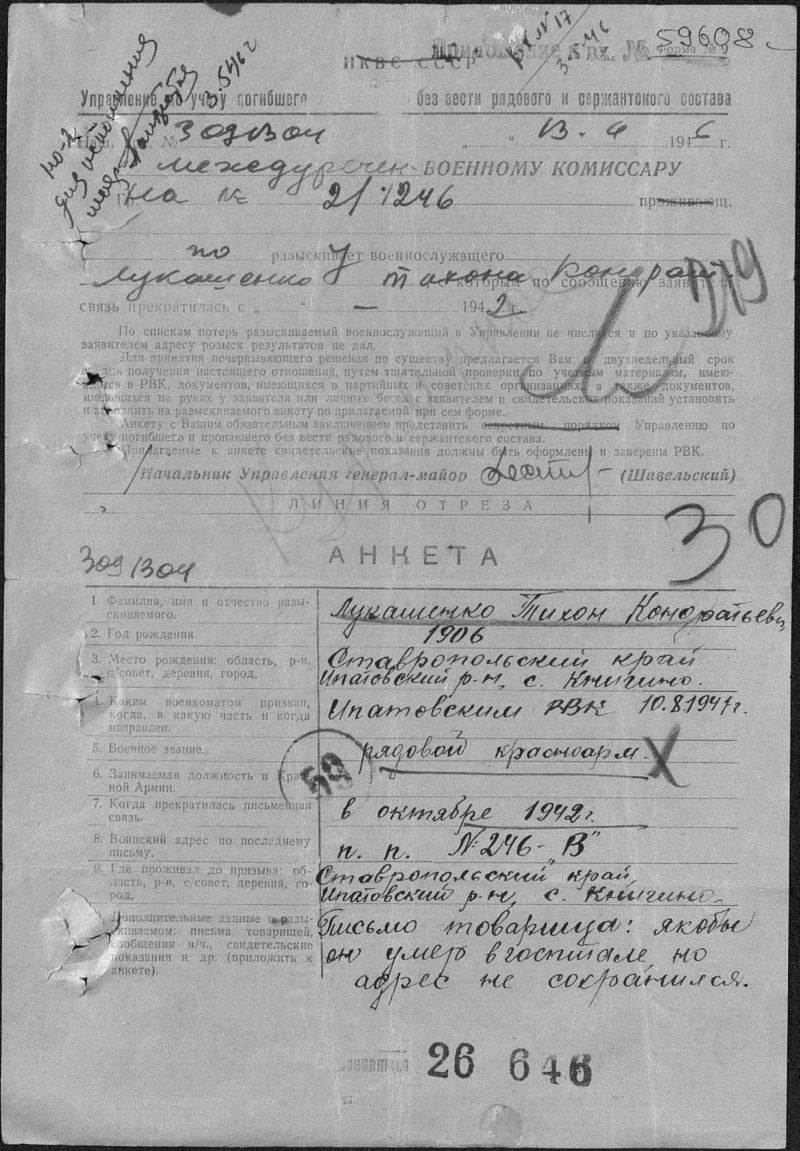 Приложение к вх. № 59608
НКВС СССР
Форма № 9
вх № 17
3.5.46
Управление по учету погибшего без вести рядового и сержантского состава
но-2
для исполнения
3.5.46 г
№ 309/304 " " 13. 4 1946 г.
междуречен- ВОЕННОМУ КОМИССАРУ
На № 21.1246 проживающ.
по разыскивает военнослужащего
Лукашенко Тихона Кондрат. с которым по сообщению заявителя
связь прекратилась с " " — 1942 г.
219
По спискам потерь разыскиваемый военнослужащий в Управлении не числится и по указанному
заявителем адресу розыск результатов не дал.
Для принятия исчерпывающего решения по существу предлагается Вам в двухнедельный срок
со дня получения настоящего отношения, путем тщательной проверки по учетным материалам, имею-
щимся в РВК, документов, имеющихся в партийных и советских организациях, а также документов,
имеющихся на руках у заявителя или личных бесед с заявителем и свидетельских показаний установить
и заполнить на разыскиваемого анкету по прилагаемой при сем форме.
Анкету с Вашим обязательным заключением представить секретным порядком Управлению по
учету погибшего и пропавшего без вести рядового и сержантского состава.
Прилагаемые к анкете свидетельские показания должны быть оформлены и заверены РВК.
Начальник Управления генерал-майор (Шавельский)
ЛИНИЯ ОТРЕЗА
30
309/304
АНКЕТА
1. Фамилия, имя и отчество разы-
скиваемого.
Лукашенко Тихон Кондратьевич
2. Год рождения.
1906
3. Место рождения: область, р-н,
с/совет, деревня, город.
Ставропольский край
Ипатовский р-н, с. Книгино.
4. Каким военкоматом призван,
когда, в какую часть и когда
направлен.
Ипатовским РВК 10.8.1941г.
5. Военное звание.
рядовой красноарм.
6. Занимаемая должность в Крас-
ной Армии.
59
7. Когда прекратилась письменная
связь.
в октябре 1942г.
8. Воинский адрес по последнему
письму.
п. п. № 246 - "В"
9. Где проживал до призыва: об-
ласть, р-н, с/совет, деревня, го-
род.
Ставропольский край,
Ипатовский р-н, с. Книгино.
Дополнительные данные о разы-
скиваемом: письма товарищей,
сообщения в/ч., свидетельские
показания и др. (приложить к
анкете).
Письмо товарища: якобы
он умер в госпитале, но
адрес не сохранился.
26 646